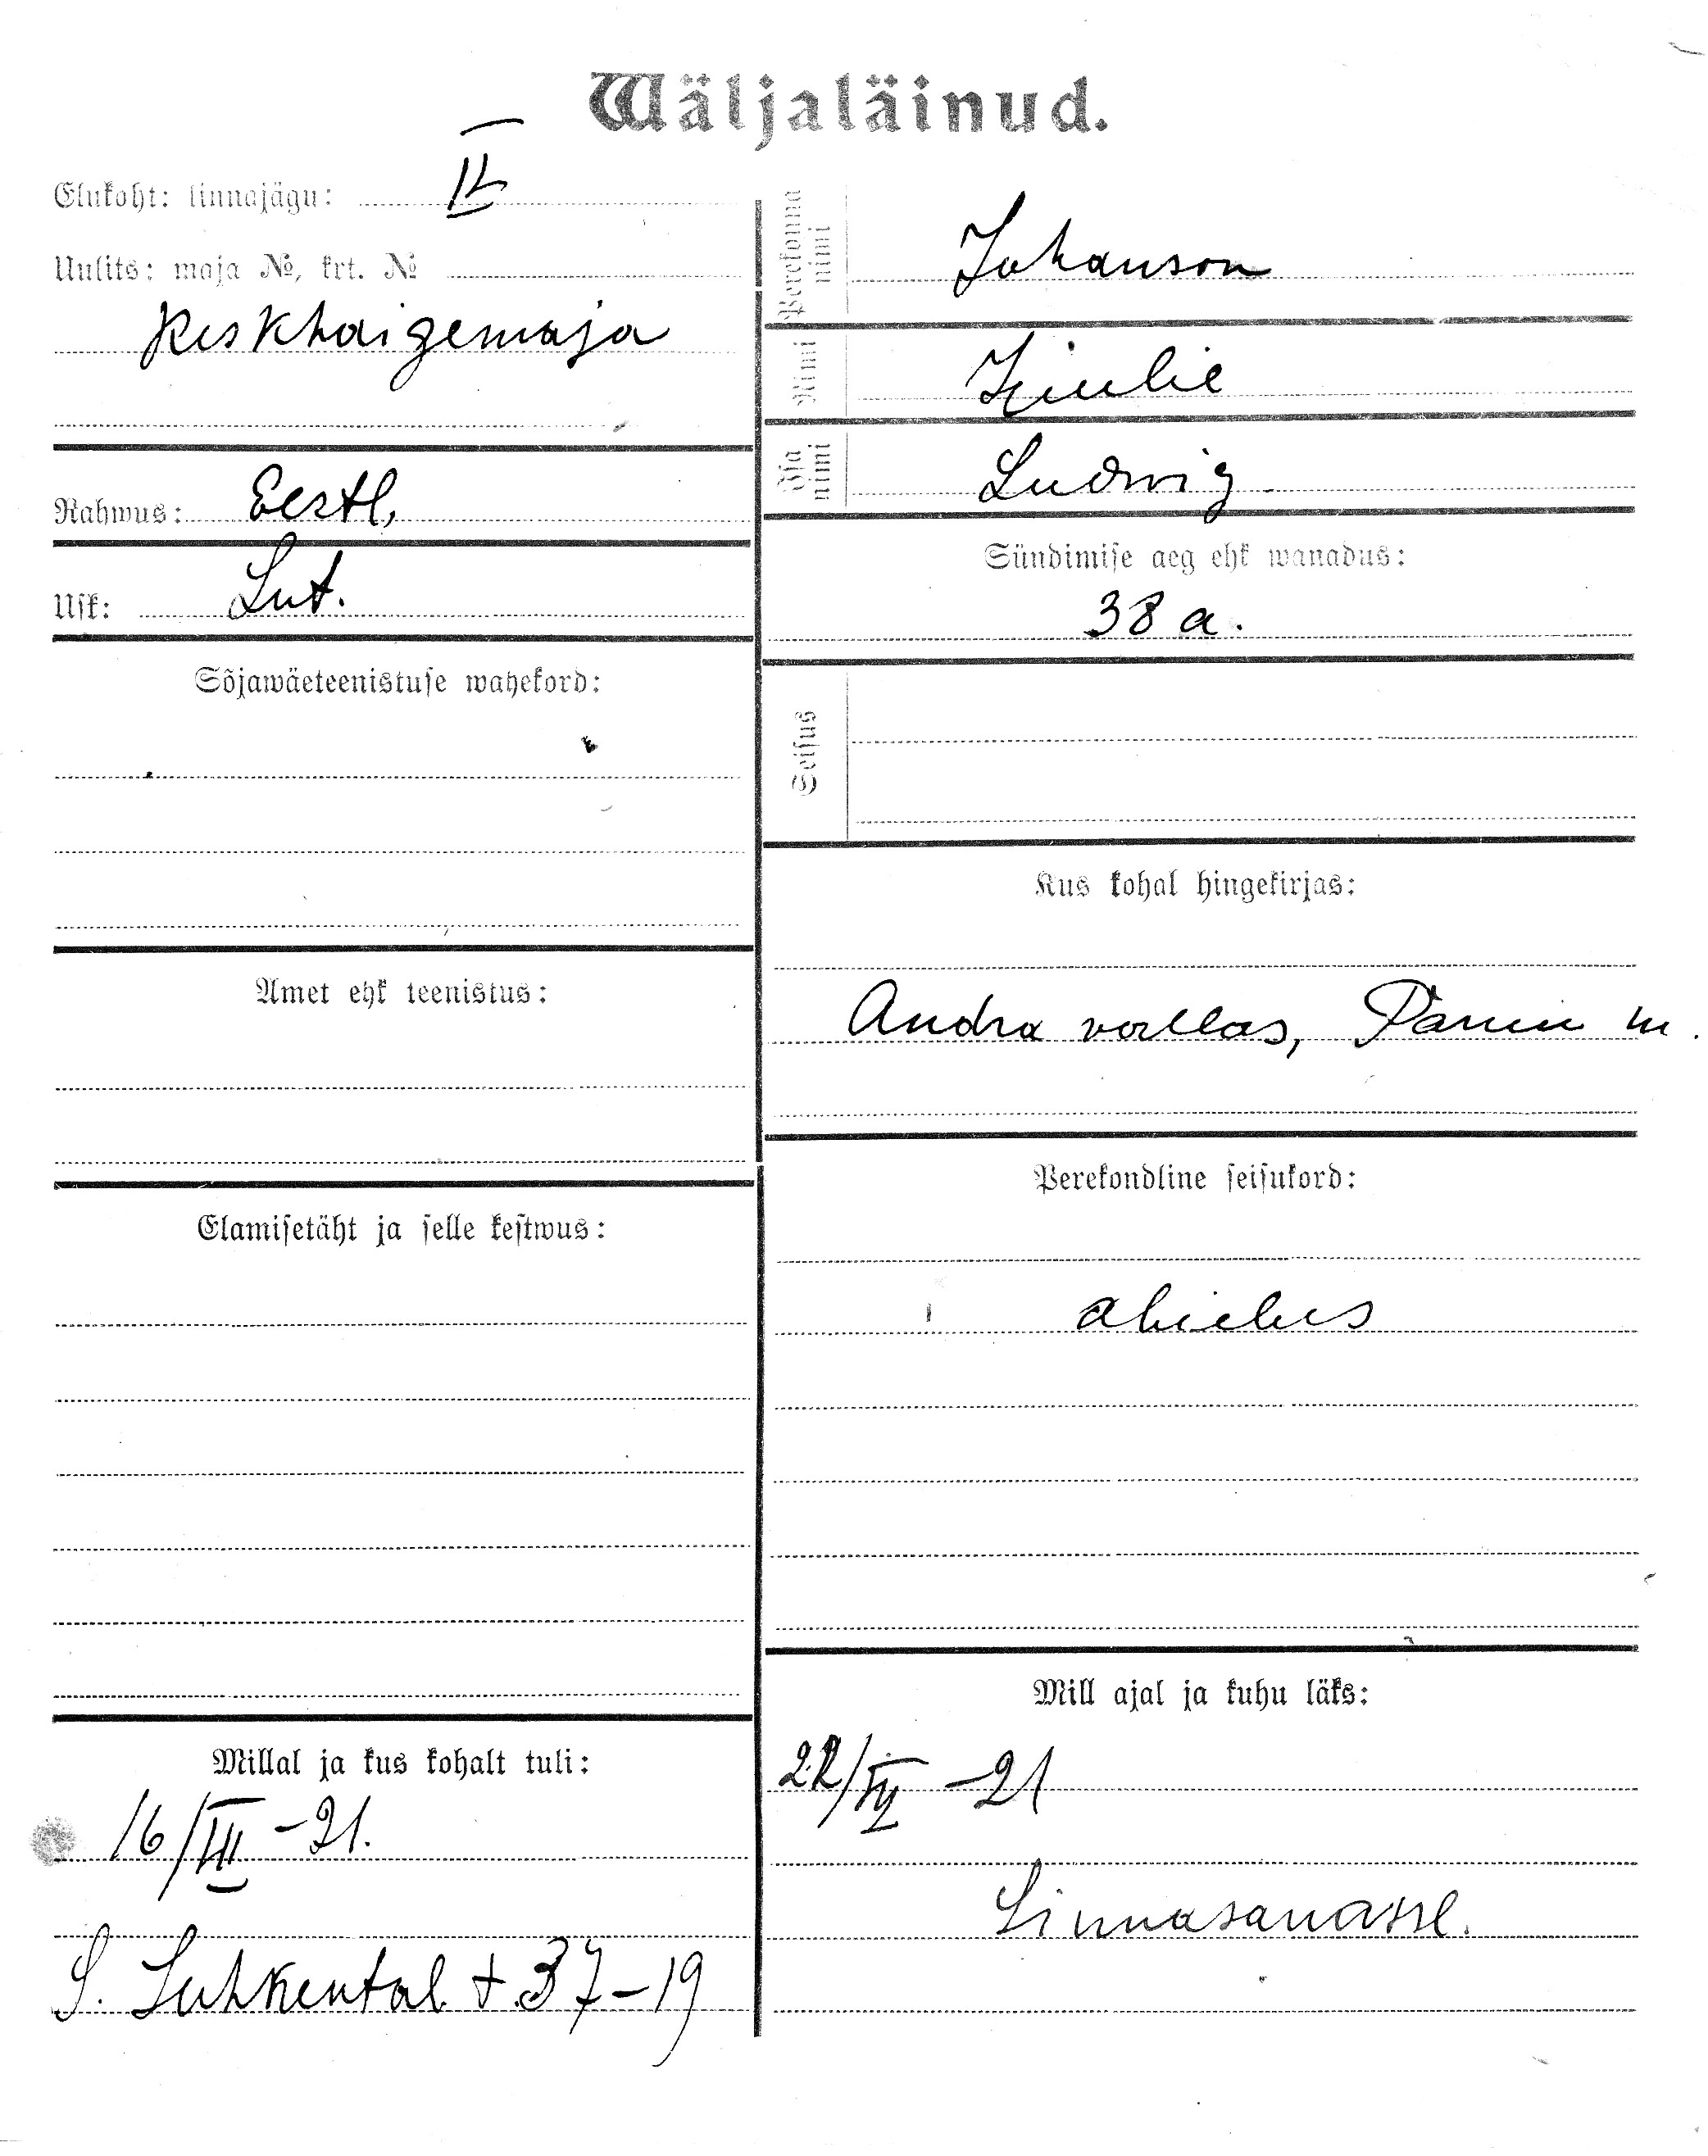 Wäljaläinud.
Elukoht: linnajägu: IV
Uulits: maja №, krt. №
Keskhaigemaja
Rahwus: Eestl,
Usk: Lut.
Sõjawäeteenistuse wahekord:
Amet ehk teenistus:
Elamisetäht ja selle kestwus:
Millal ja kus kohalt tuli:
16/III -21.
S. Luhkental t 37-19
Perekonna nimi Johanson
Nimi Juulie
Isa nimi Ludwig
Sündimise aeg ehk wanadus:
38 a.
Seisus
Kus kohal hingekirjas:
Andra vallas, Pärnu m.
Perekondline seisukord:
abielus
Mill ajal ja kuhu läks:
22/IV -21
Linnasanasse.